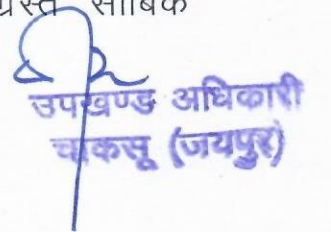 ग्रस्त साबिक
उपखण्ड अधिकारी
चाकसू (जयपुर)